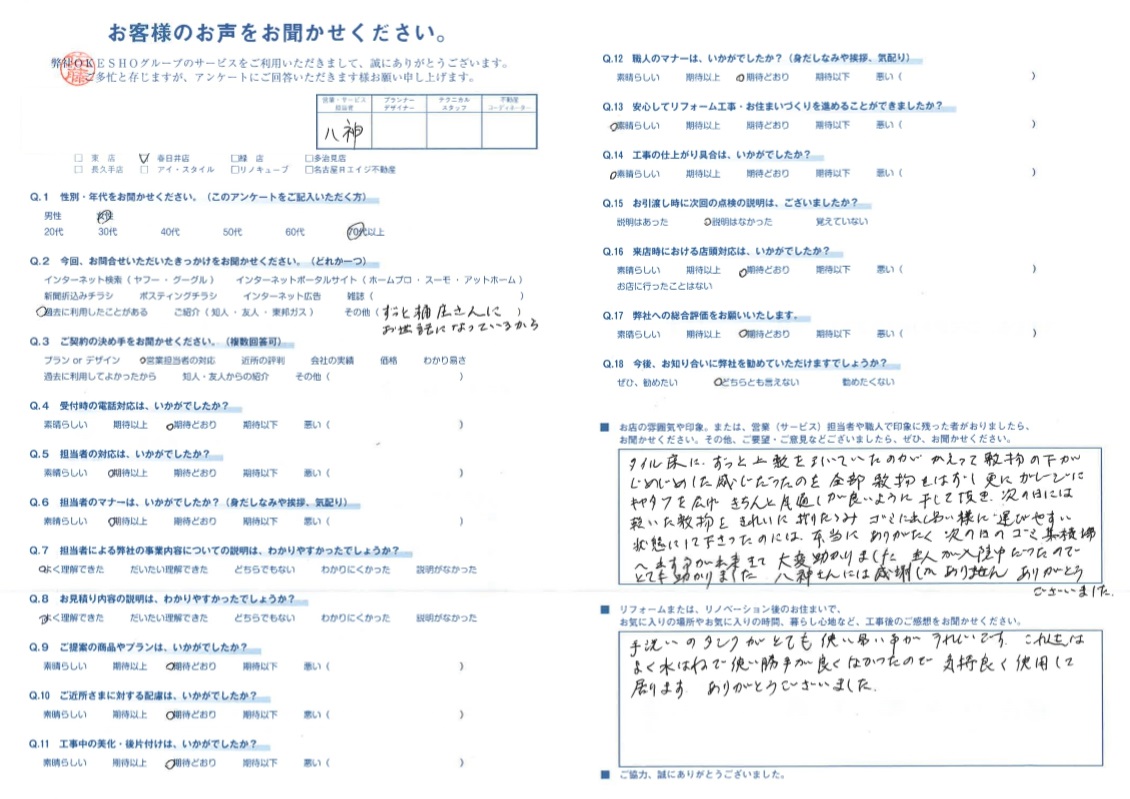 お客様のお声をお聞かせください。
弊社OKESHOグループのサービスをご利用いただきまして、誠にありがとうございます。
ご多忙と存じますが、アンケートにご回答いただきます様お願い申し上げます。
営業・サービス担当者 プランナーデザイナー テクニカルスタッフ 不動産コーディネーター
八神
□ 東 店 □ 春日井店 □緑 店 □多治見店
□ 長久手店 □ アイ・スタイル □リノキューブ □名古屋Rエイジ不動産
Q.1 性別・年代をお聞かせください。(このアンケートをご記入いただく方)
男性 女性
20代 30代 40代 50代 60代 70代以上
Q.2 今回、お問合せいただいたきっかけをお聞かせください。(どれか一つ)
インターネット検索(ヤフー・グーグル) インターネットポータルサイト(ホームプロ・スーモ・アットホーム)
新聞折込みチラシ ポスティングチラシ インターネット広告 雑誌( )
過去に利用したことがある ご紹介(知人・友人・東邦ガス) その他(ずっと桶庄さんに )
お世話になっているから
Q.3 ご契約の決め手をお聞かせください。(複数回答可)
プラン or デザイン 営業担当者の対応 近所の評判 会社の実績 価格 わかり易さ
過去に利用してよかったから 知人・友人からの紹介 その他( )
Q.4 受付時の電話対応は、いかがでしたか?
素晴らしい 期待以上 期待どおり 期待以下 悪い( )
Q.5 担当者の対応は、いかがでしたか?
素晴らしい 期待以上 期待どおり 期待以下 悪い( )
Q.6 担当者のマナーは、いかがでしたか?(身だしなみや挨拶、気配り)
素晴らしい 期待以上 期待どおり 期待以下 悪い( )
Q.7 担当者による弊社の事業内容についての説明は、わかりやすかったでしょうか?
よく理解できた だいたい理解できた どちらでもない わかりにくかった 説明がなかった
Q.8 お見積り内容の説明は、わかりやすかったでしょうか?
よく理解できた だいたい理解できた どちらでもない わかりにくかった 説明がなかった
Q.9 ご提案の商品やプランは、いかがでしたか?
素晴らしい 期待以上 期待どおり 期待以下 悪い( )
Q.10 ご近所さまに対する配慮は、いかがでしたか?
素晴らしい 期待以上 期待どおり 期待以下 悪い( )
Q.11 工事中の美化・後片付けは、いかがでしたか?
素晴らしい 期待以上 期待どおり 期待以下 悪い( )
Q.12 職人のマナーは、いかがでしたか?(身だしなみや挨拶、気配り)
素晴らしい 期待以上 期待どおり 期待以下 悪い( )
Q.13 安心してリフォーム工事・お住まいづくりを進めることができましたか?
素晴らしい 期待以上 期待どおり 期待以下 悪い( )
Q.14 工事の仕上がり具合は、いかがでしたか?
素晴らしい 期待以上 期待どおり 期待以下 悪い( )
Q.15 お引渡し時に次回の点検の説明は、ございましたか?
説明はあった 説明はなかった 覚えていない
Q.16 来店時における店頭対応は、いかがでしたか?
素晴らしい 期待以上 期待どおり 期待以下 悪い( )
お店に行ったことはない
Q.17 弊社への総合評価をお願いいたします。
素晴らしい 期待以上 期待どおり 期待以下 悪い( )
Q.18 今後、お知り合いに弊社を勧めていただけますでしょうか?
ぜひ、勧めたい どちらとも言えない 勧めたくない
■ お店の雰囲気や印象。または、営業(サービス)担当者や職人で印象に残った者がおりましたら、
お聞かせください。その他、ご要望・ご意見などございましたら、ぜひ、お聞かせください。
タイル床に、ずっと上敷を引いていたのが かえって敷物の下が
じめじめした感じだったのを 全部 敷物をはずし 更にガレージに
キャタツを広げ きちんと風通しが良いように 干して頂き、次の日には
乾いた敷物を きれいに 折りたたみ ゴミに出し易い様に 運びやすい
状態にして下さったのには、本当に ありがたく 次の日のゴミ集積場
へ出す事が出来ました 大変助かりました 主人が入院中だったので
とても助かりました 八神さんには感謝しかありません ありがとう
ございました.
■ リフォームまたは、リノベーション後のお住まいで、
お気に入りの場所やお気に入りの時間、暮らし心地など、工事後のご感想をお聞かせください。
手洗いのタンクがとても使い易い事が うれしいです. これ迄は
よく水はねで使い勝手が良くなかったので 気持良く使用して
居ります. ありがとうございました.
■ ご協力、誠にありがとうございました。